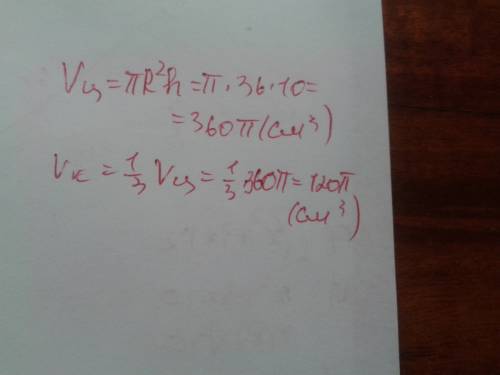 Vц = πR²h = π · 36 · 10 =
= 360π (см³)
Vк = 1/3 Vц = 1/3 · 360π = 120π
(см³)